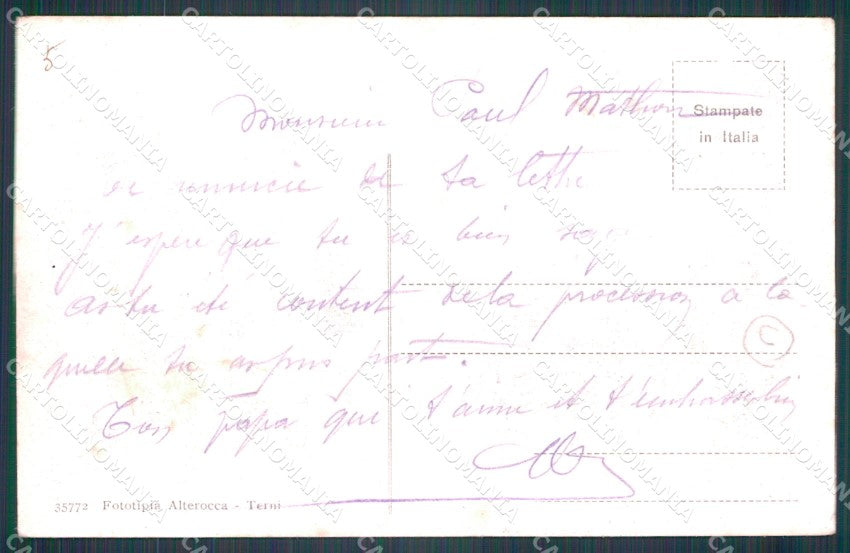 5
Monsieur Paul Mathon
Stampate
in Italia
de ta lettre
J'espere que tu es bien
as tu ete content de la procession a la
quelle tu as pris part.
Ton papa qui t'aime et t'embrasse bien
35772 Fototipia Alterocca - Terni
CARTOLINOMANIA